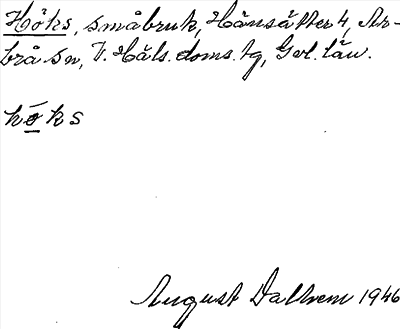 Höks, småbruk, Hänsätter 4, Ar-
brå sn, V. Häls. doms. tg, Gvl. län.
hö́ks
August Dalhem 1946